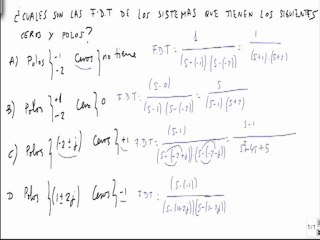 ¿CUALES SON LAS F.D.T DE LOS SISTEMAS QUE TIENEN LOS SIGUIENTES
CEROS Y POLOS?
A) Polos } -1 -2 Ceros } no tiene F.D.T = 1 / (s-(-1))(s-(-2)) = 1 / (s+1)(s+2)
B) Polos } +1 -2 Cero } 0 F.D.T = (s-0) / (s-1)(s-(-2)) = s / (s-1)(s+2)
C) Polos } (-2±j) Ceros } +1 F.D.T = (s-1) / (s-(-2+j))(s-(-2-j)) = s-1 / s²+4s+5
D) Polos } (1±2j) Ceros } -1 F.D.T = (s-(-1)) / (s-(1+2j))(s-(1-2j))
1/1